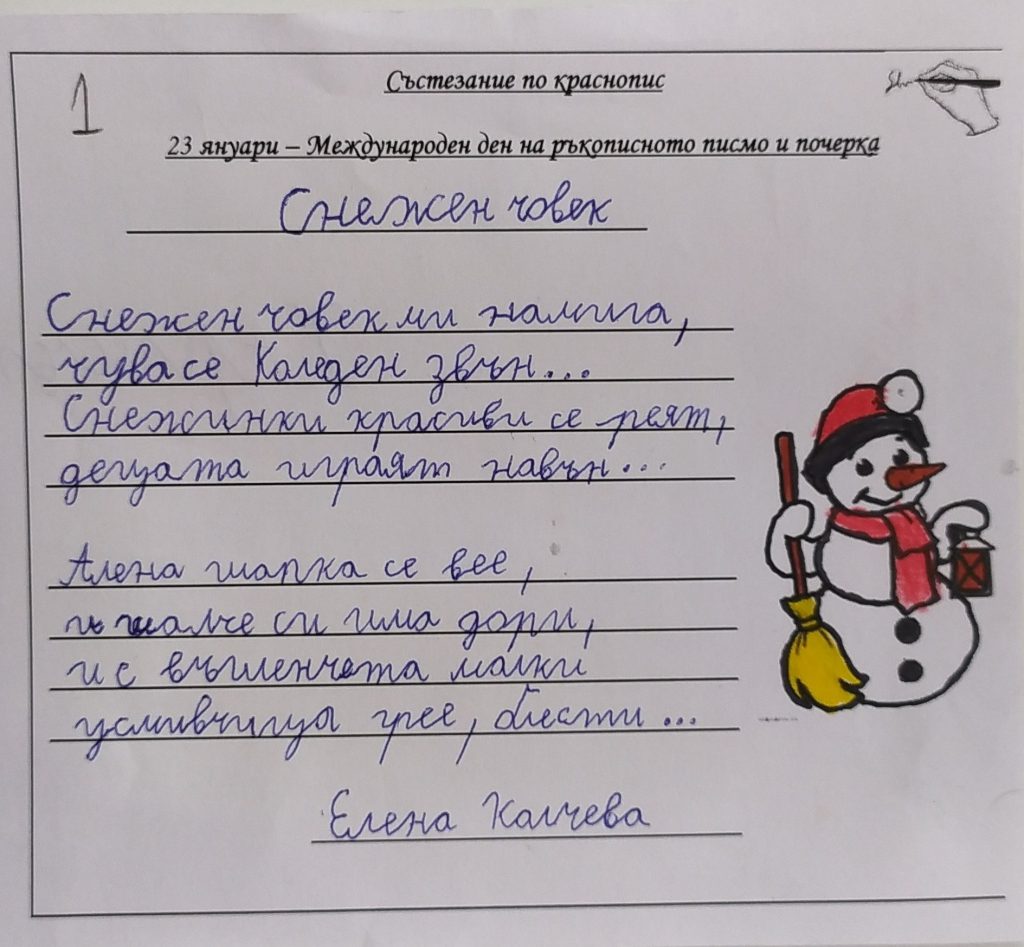 1
Състезание по краснопис
23 януари – Международен ден на ръкописното писмо и почерка
Снежен човек
Снежен човек ми намига,
чува се Коледен звън...
Снежинки красиви се реят,
децата играят навън...
Алена шапка се вее,
и шалче си има дори,
и с въгленчета малки
усмивчица грее, блести...
Елена Калчева